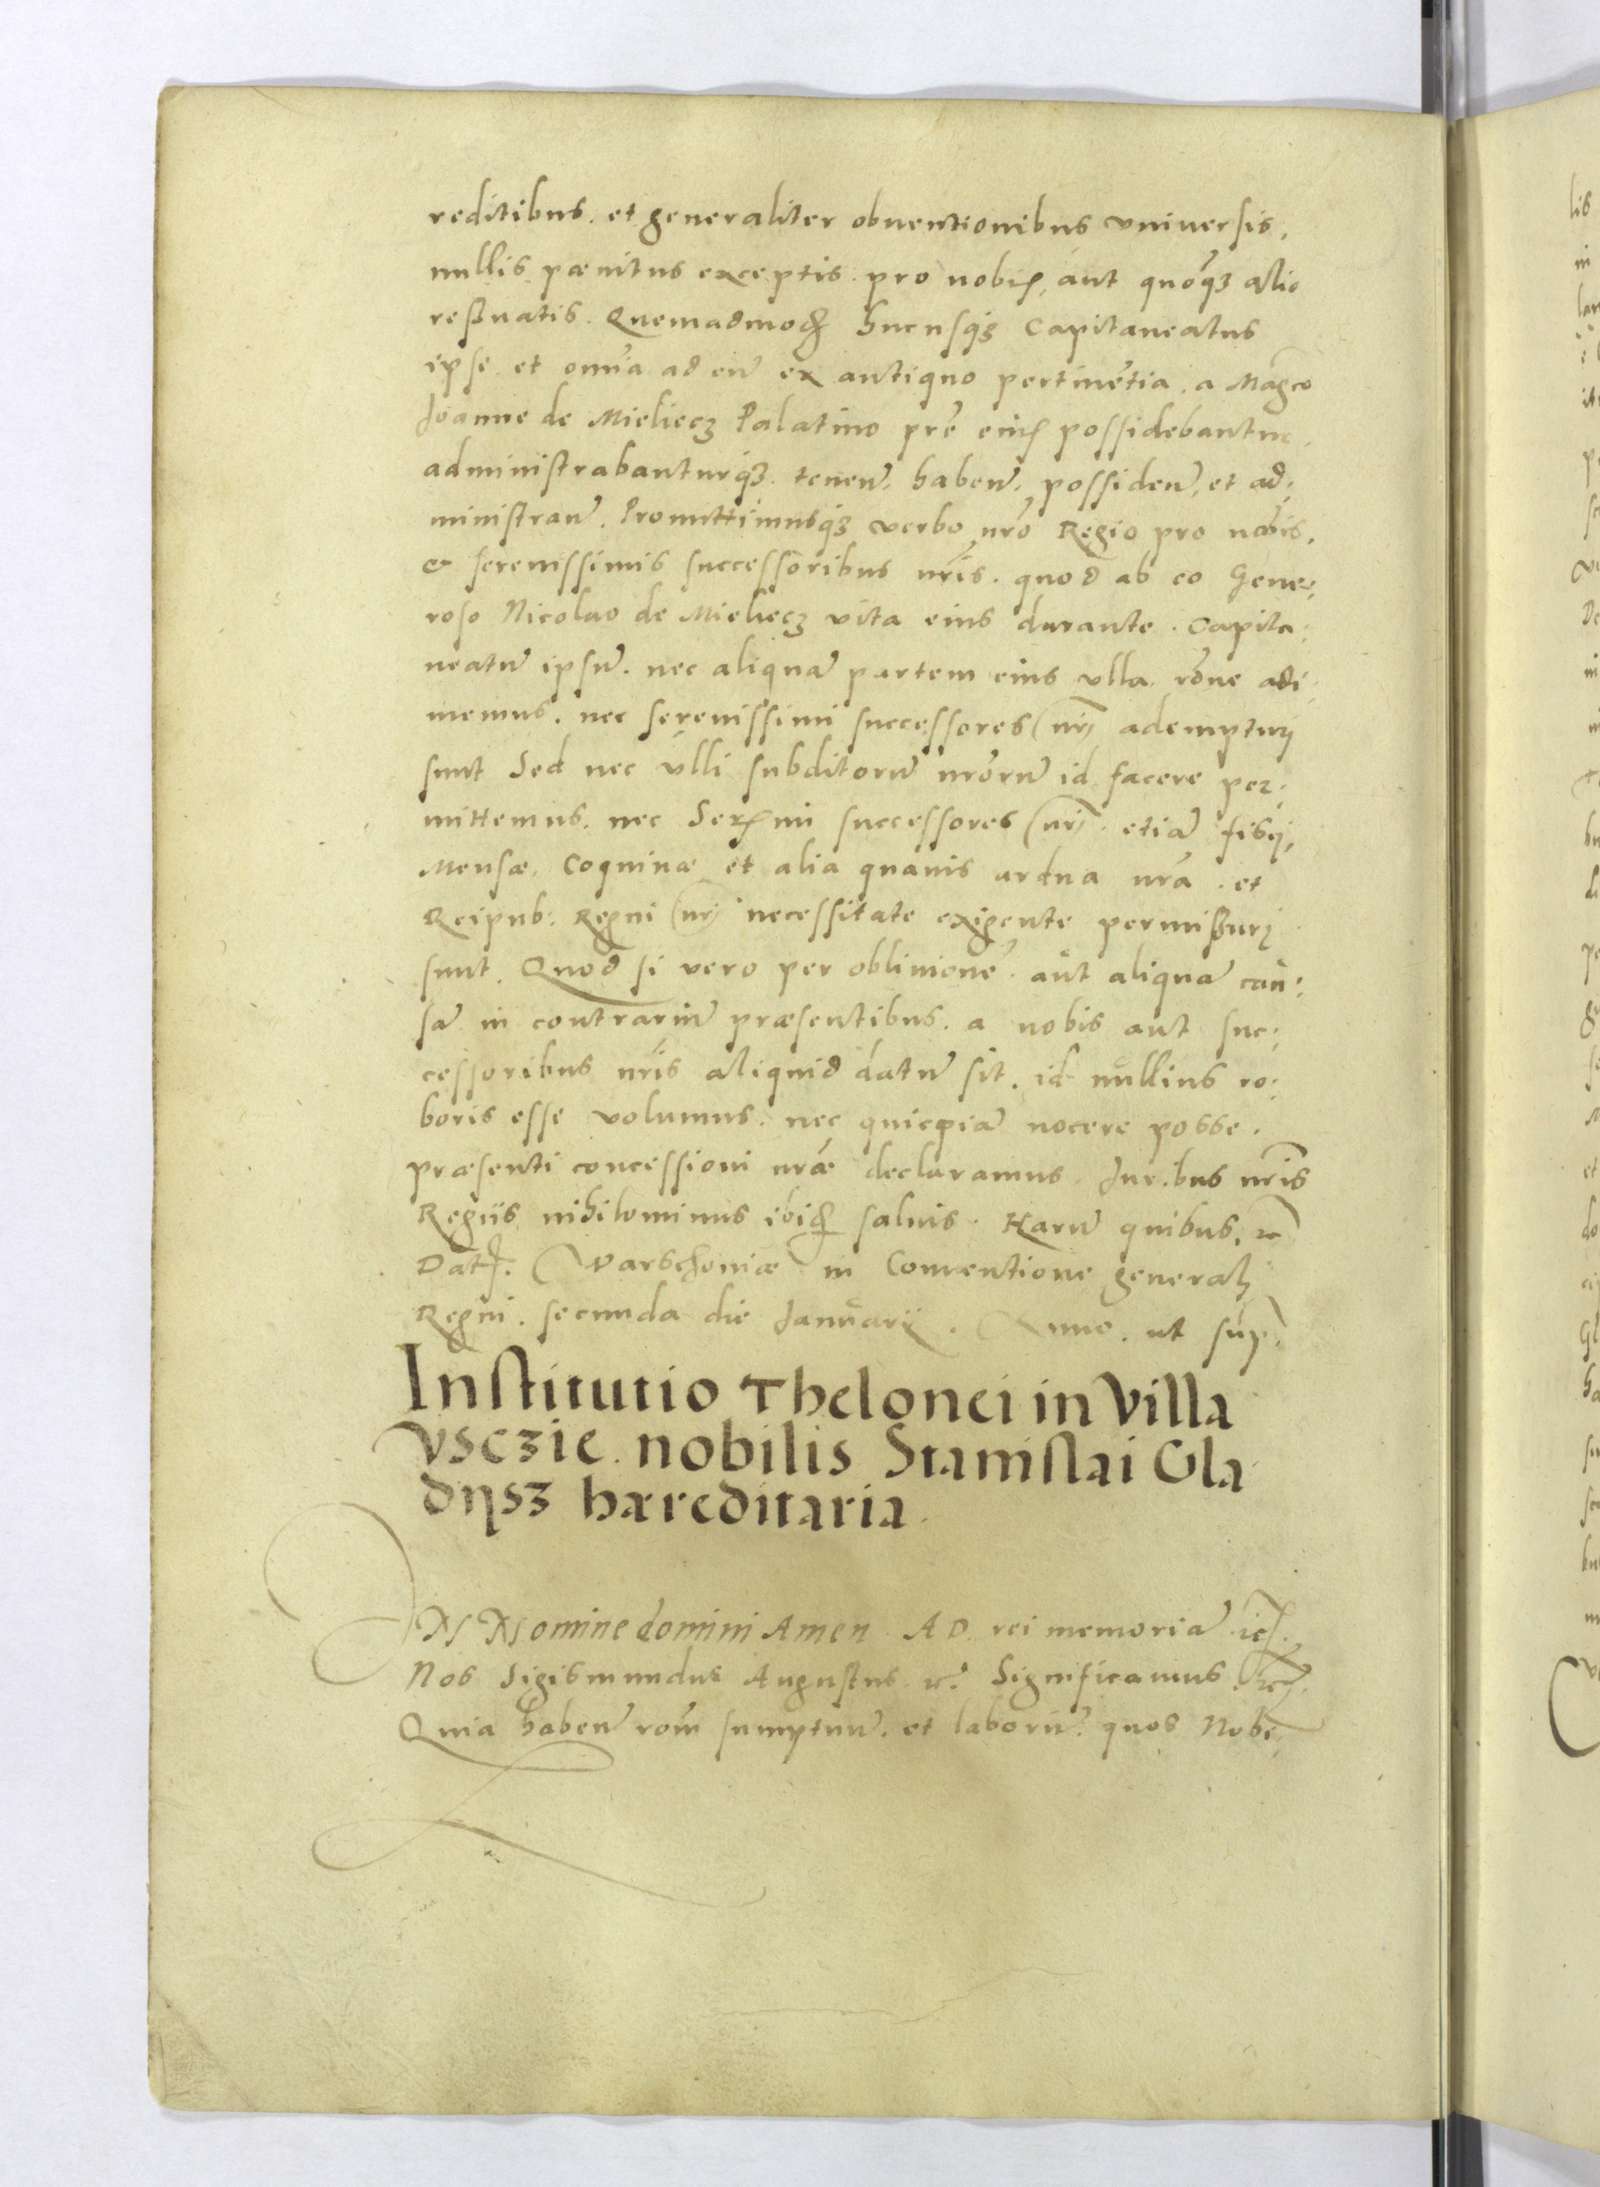 reditibus. et generaliter obuentionibus vniuersis,
nullis pænitus exceptis. pro nobis, aut quoq̃ȝ alio
reẞuatis. Quemadmoð hucusq̃ȝ Capitaneatus
ipse et oĩa ad eũ ex antiquo pertinẽtia. a Mag̃co
Joanne de Mieliecȝ Palatino prẽ eius possidebantur.
administrabanturq̃ȝ. tenen̄. haben̄. possiden̄. et ad:
ministran̄. Promittimusq̃ȝ verbo nr̃o Regio pro nobis.
& serenissimis successoribus nr̃is. quod ab eo Gene:
roso Nicolao de Mieliecȝ vita eius durante. Capita:
neatũ ipsũ. nec aliquã partem eius vlla rõne adi
memus. nec serenissimi successores nr̃j adempturj
sunt Sed nec vlli subditorũ nr̃orũ id facere per:
mittemus. nec Ser̃mi successores nr̃j. etiã fisci,
Mensæ. Coquinæ et alia quauis ardua nr̃a. et
Reipub: Regni nr̃j necessitate exigente permissurj
sunt. Quod si vero per obliuionẽ. aut aliquã cau:
sã in contrariũ præsentibus. a nobis aut suc:
cessoribus nr̃is aliquid datũ sit. id nullius ro:
boris esse volumus. nec quicpiã nocere posse.
præsenti concessioni nr̃æ declaramus. Juribus nr̃is
Regiis nihilominus ibid̃ saluis. Harũ quibus. ꝛc
Dat. Varschouiæ in Conuentione generalj
Regni. secunda die Januarij. Anno. ut sup̃.
Institutio Thelonei in Villa
Vsczie. nobilis Stanislai Gla
dijsȝ hæreditaria.
IN Nomine domini Amen. AD rei memoriã ꝛc.
Nos Sigismundus Augustus ꝛc. Significamus. ꝛc.
Quia haben̄ rõm sumptuũ. et laborũ. quos Nobi: